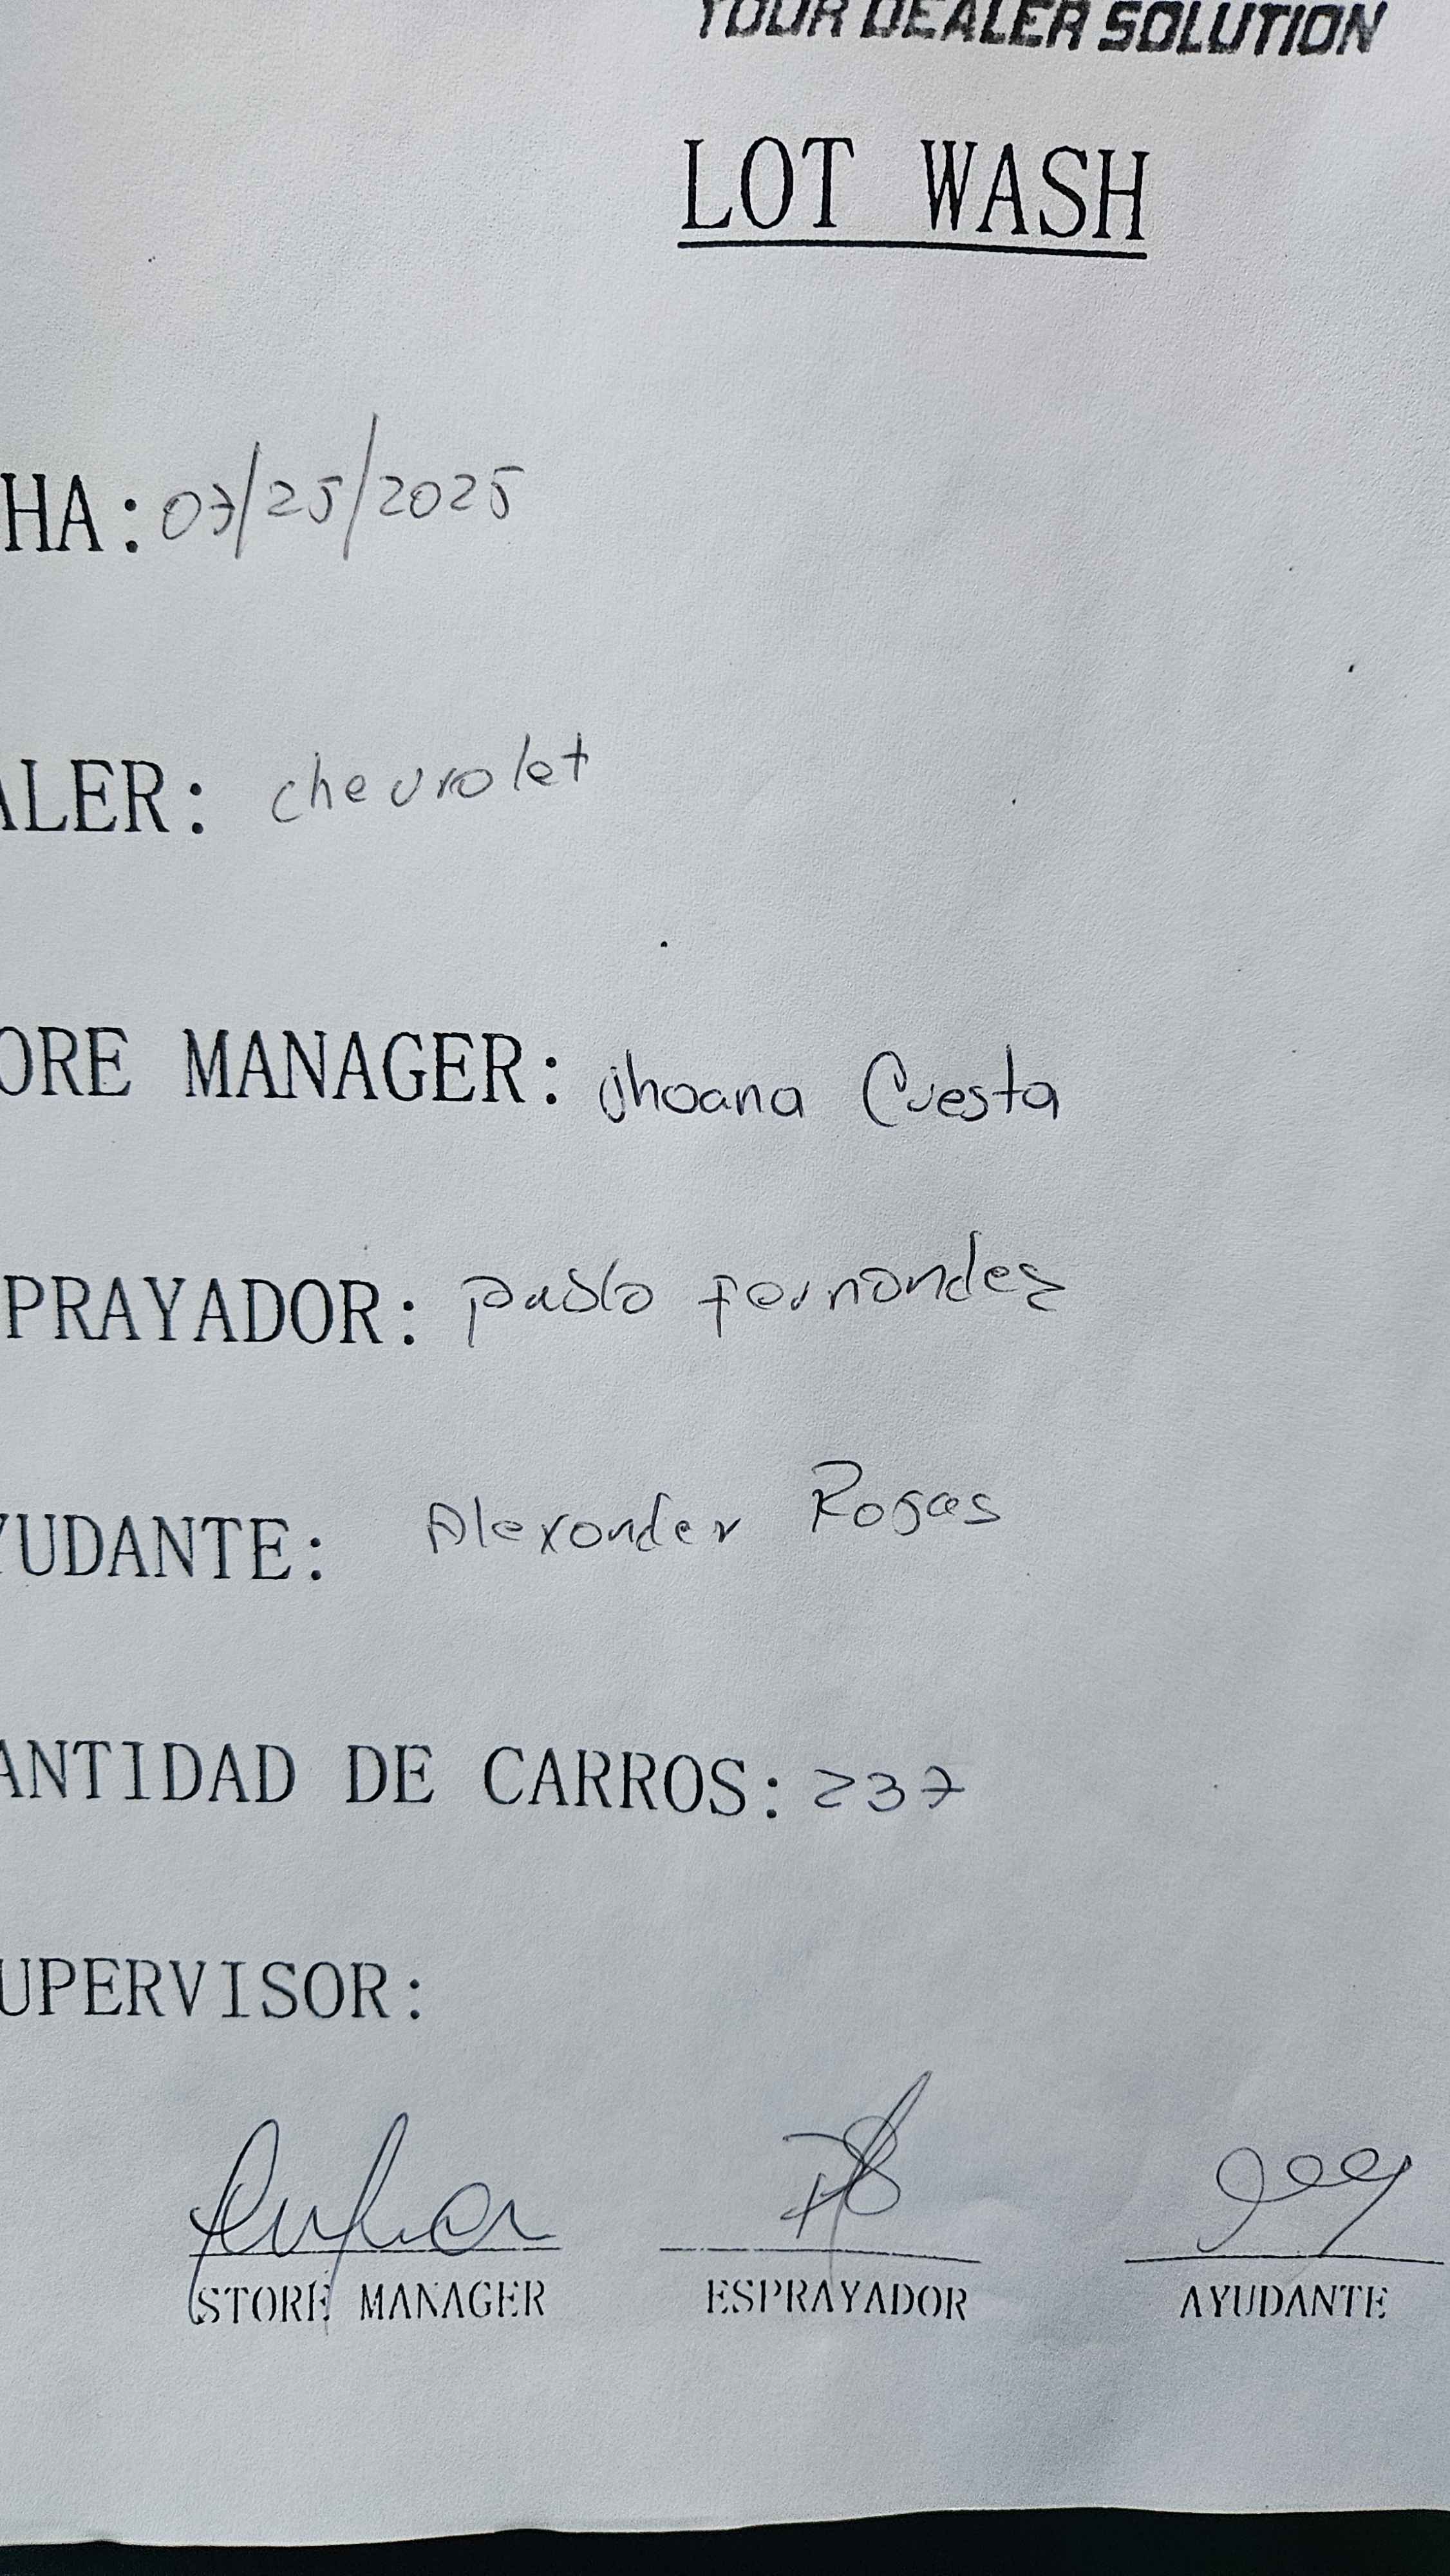 YOUR DEALER SOLUTION
LOT WASH
HA: 03/25/2025
ALER: chevrolet
ORE MANAGER: jhoana Cuesta
PRAYADOR: pablo fernandez
YUDANTE: Alexander Rojas
ANTIDAD DE CARROS: 237
UPERVISOR:
STORE MANAGER ESPRAYADOR AYUDANTE